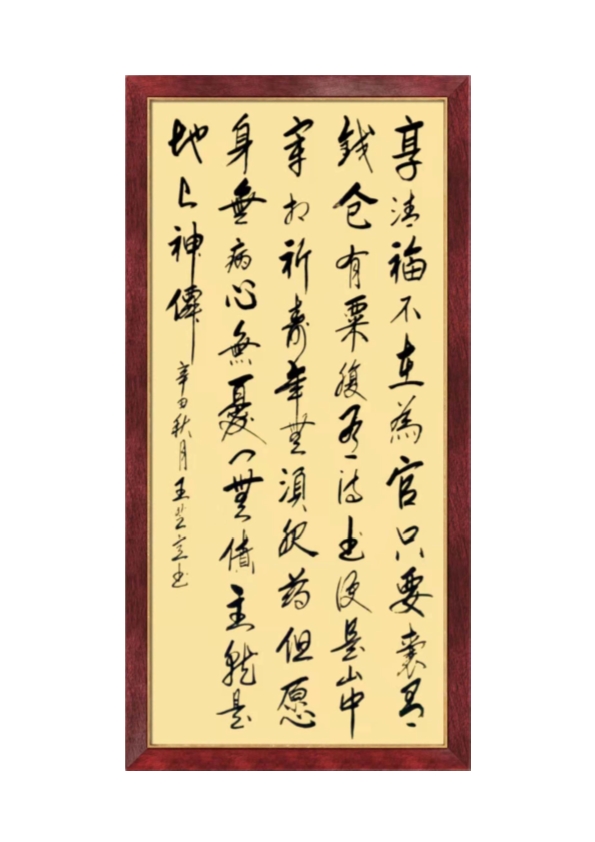 享清福不在為官只要囊有
錢仓有粟腹有诗书便是山中
宰相祈寿年無須服药但愿
身無病心無憂门無債主就是
地上神僊
辛丑秋月王书